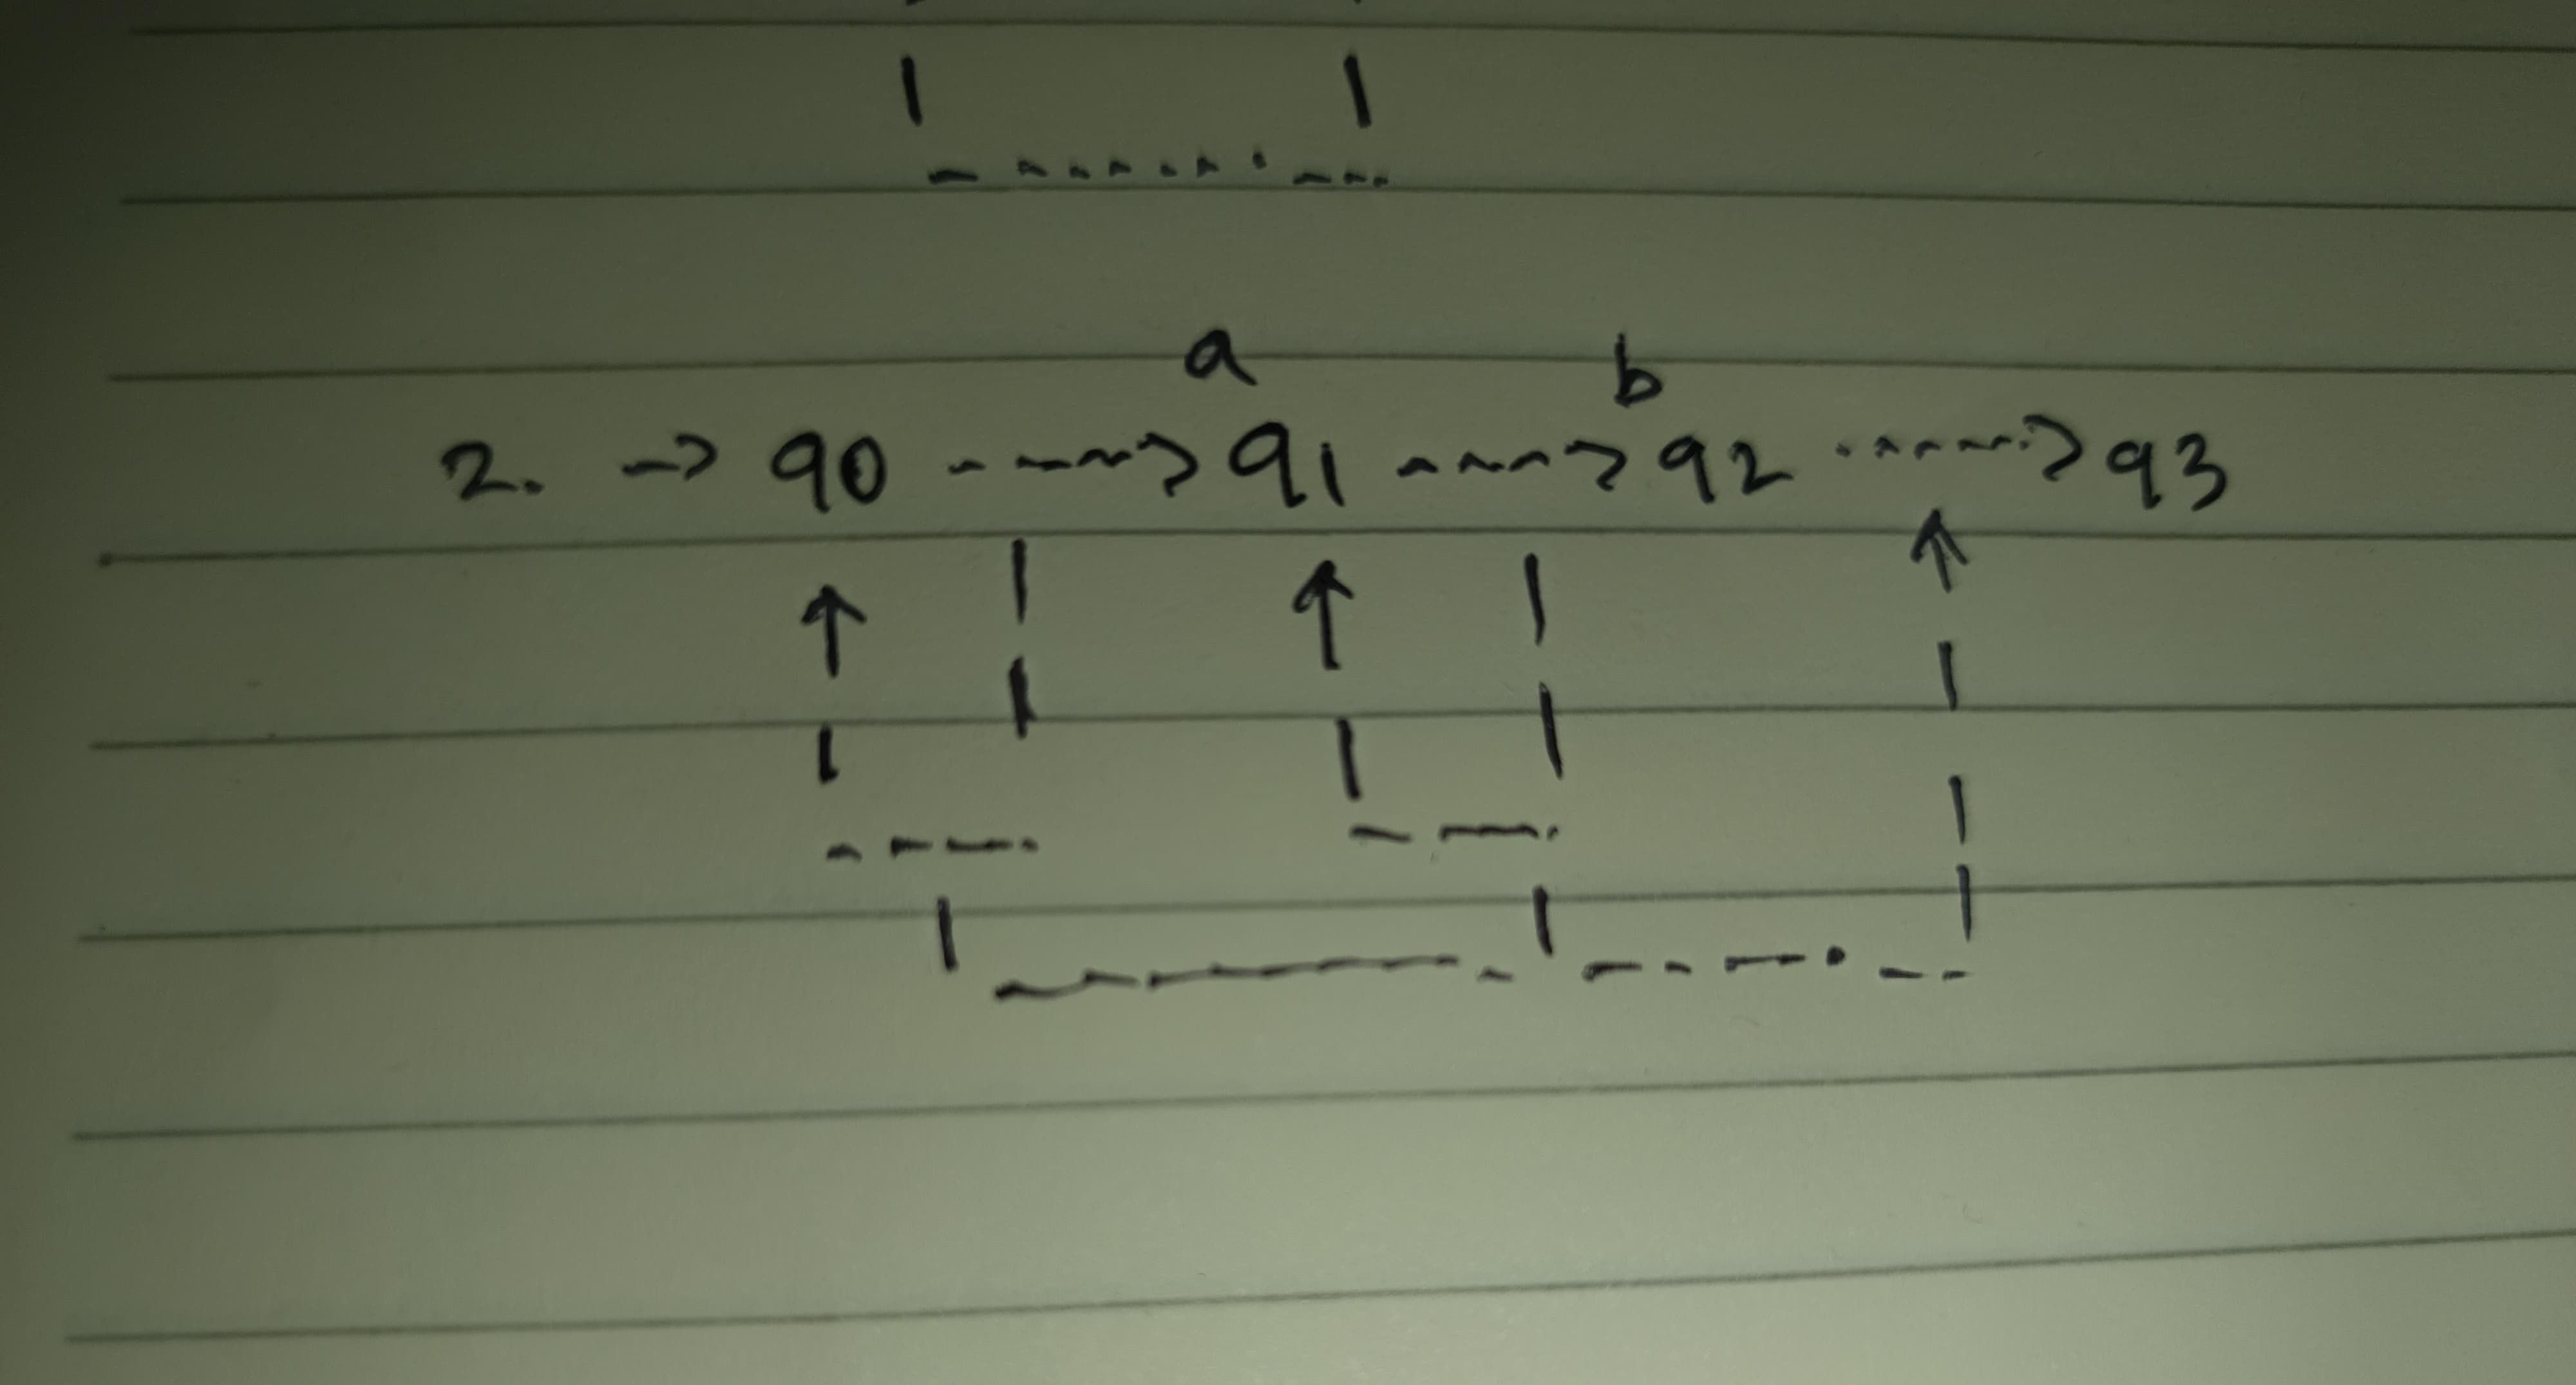 a b
2. -> q0 ----> q1 ----> q2 -----> q3